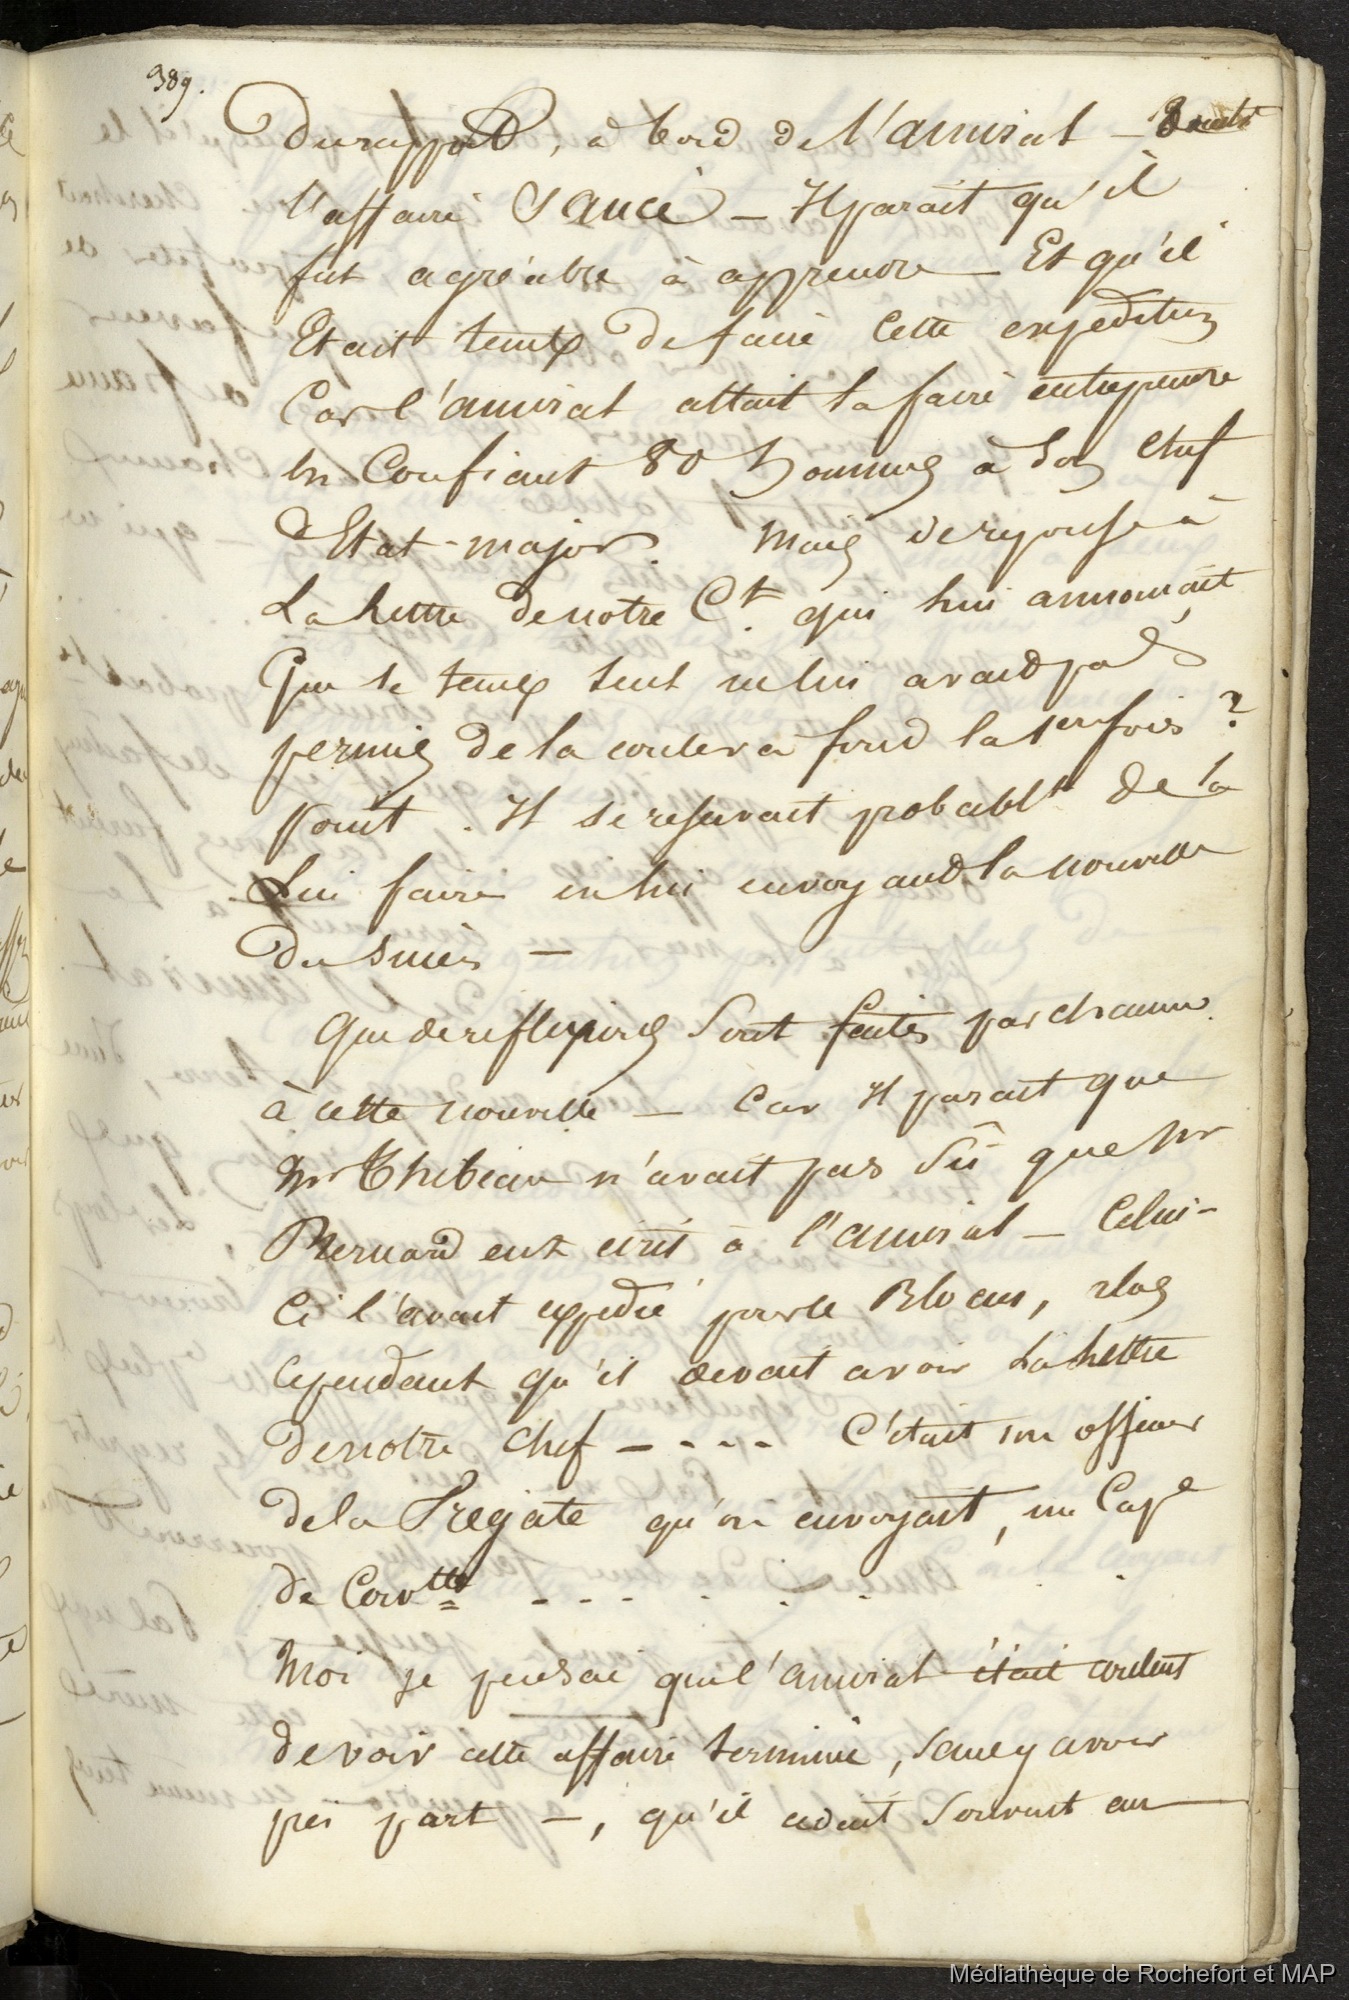 389.
Du rapport, à bord de l'amiral - Toute
l'affaire Sancé — Il parait qu'il
fut agréable à apprendre — Et qu'il
Etait temps de faire cette expedition
Car l'amiral allait la faire entreprendre
En Confiant 80 hommes à son Chef
d'Etat-major. Mais de reponse à
La lettre de notre Ct. qui lui annonçait
Que le temps seul ne lui avait pas
permis de la couler a fond la 1ere fois ?
point. Il se reservait probablt de la
Lui faire en lui envoyant la nouvelle
Du succès —
Que de reflexions Sont faites par chacun
à cette nouvelle — Car Il parait que
Mr Thibeau n'avait pas Sû que Mr
Bernard eut écrit à l'amiral — Celui-
Ci l'avait expedié pour le Blocus,
Cependant qu'il devait avoir La lettre
de notre Chef - - - - - C'était un officier
de la Fregate qu'on envoyait, un Cape
de Corvtte - - - - . - .
Moi je pensai que l'amiral était content
de voir cette affaire terminée, sans y avoir
pris part —, qu'il avait Souvent eu
Médiathèque de Rochefort et MAP